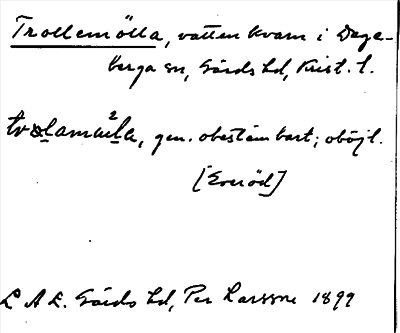 Trollemölla, vattenkvarn i Dege-
berga sn, Gärds hd, Krist. l.
trolamöla, gen. obestämbart; oböjl.
[Everöd]
L A L. Gärds hd, Per Larsson 1899